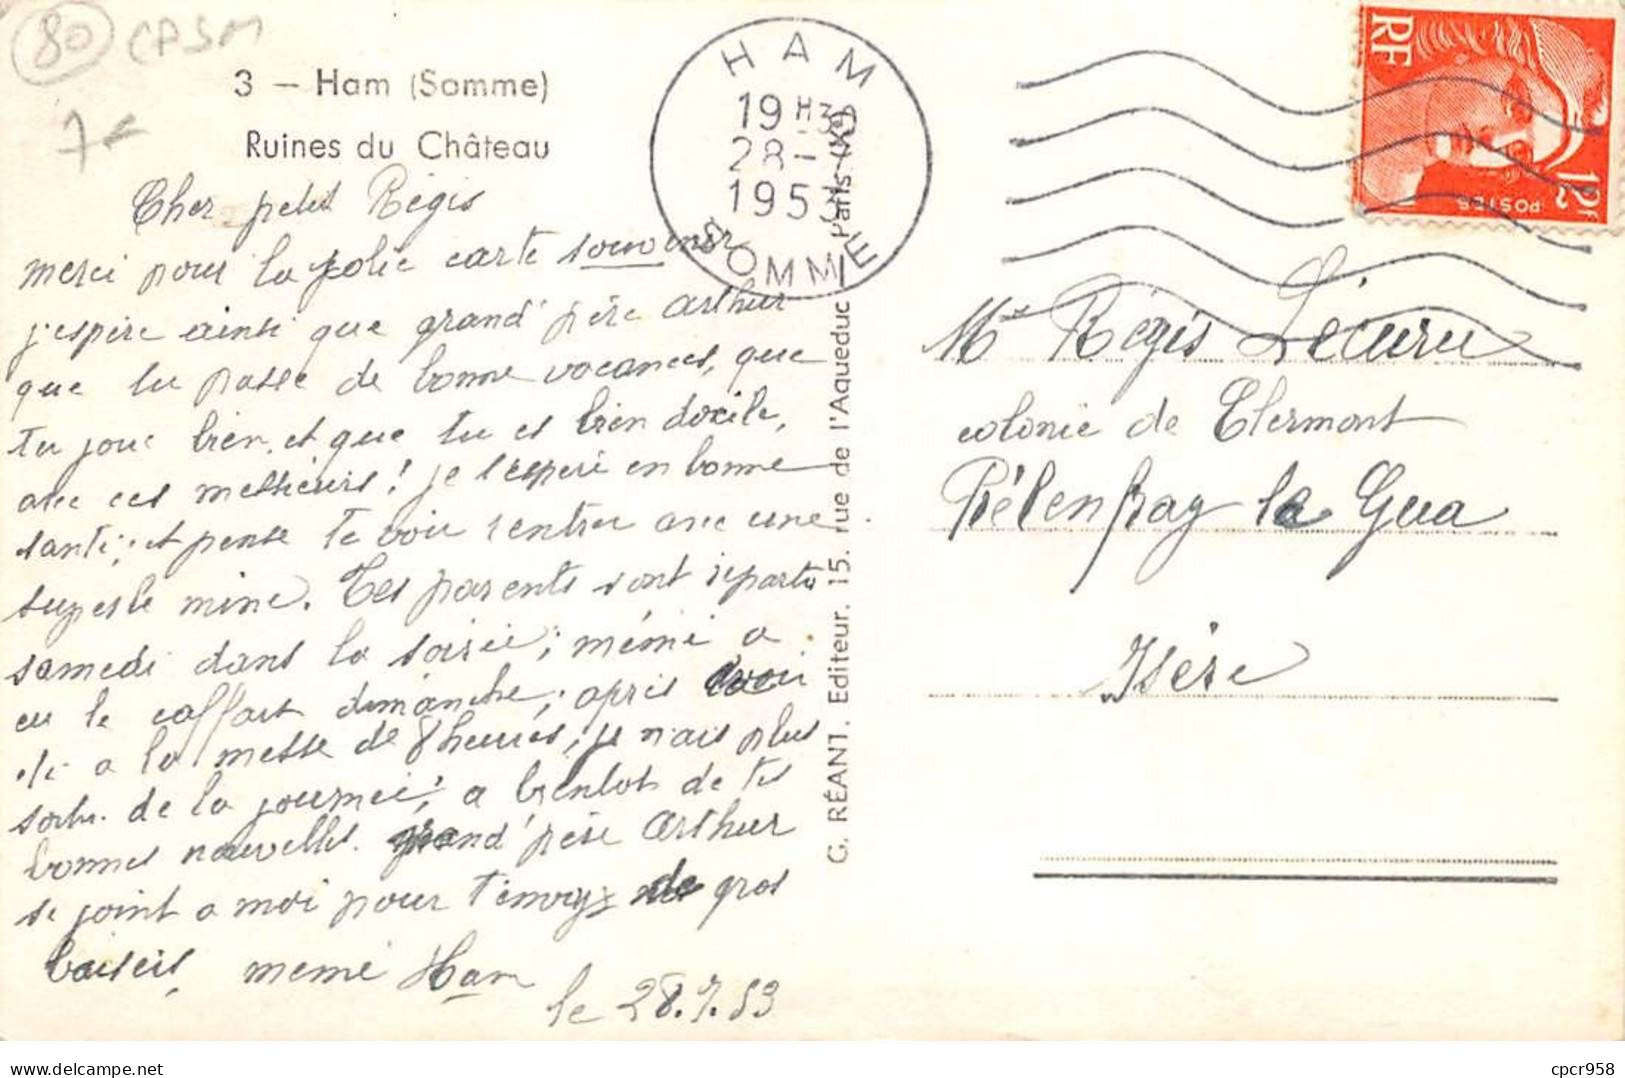 80 CPSM
7€
3 – Ham (Somme)
Ruines du Château
HAM
19 H30
28-
1953
SOMME
RF
12F
POSTES
Cher petit Régis
merci pour la jolie carte souvenir
j'espère ainsi que grand'père arthur
que tu passe de bonne vacances, que
tu joue bien, et que tu es bien docile,
avec ces messieurs! je t'espère en bonne
santé; et pense te voir rentrer avec une
superbe mine. Tes parents sont repartis
samedi dans la soirée; mémé a
eu le caffart dimanche; après avoir
été a la messe de 8 heures; je n'ais plus
sortu de la journée; a bientot de tes
bonnes nouvelles. grand'père arthur
se joint a moi pour t'envoyer de gros
baisers, memé Ham
le 28.7.53
G. RÉANT. Editeur. 15. rue de l'Aqueduc - Paris (X)
Mr Régis Lécuru
colonie de Clermont
Prélenfray la Gua
Isère
cpcr958